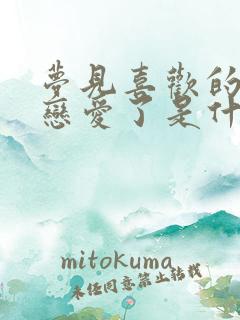 夢見喜歡的
戀愛了是什
mitokuma
未任同意禁止转载